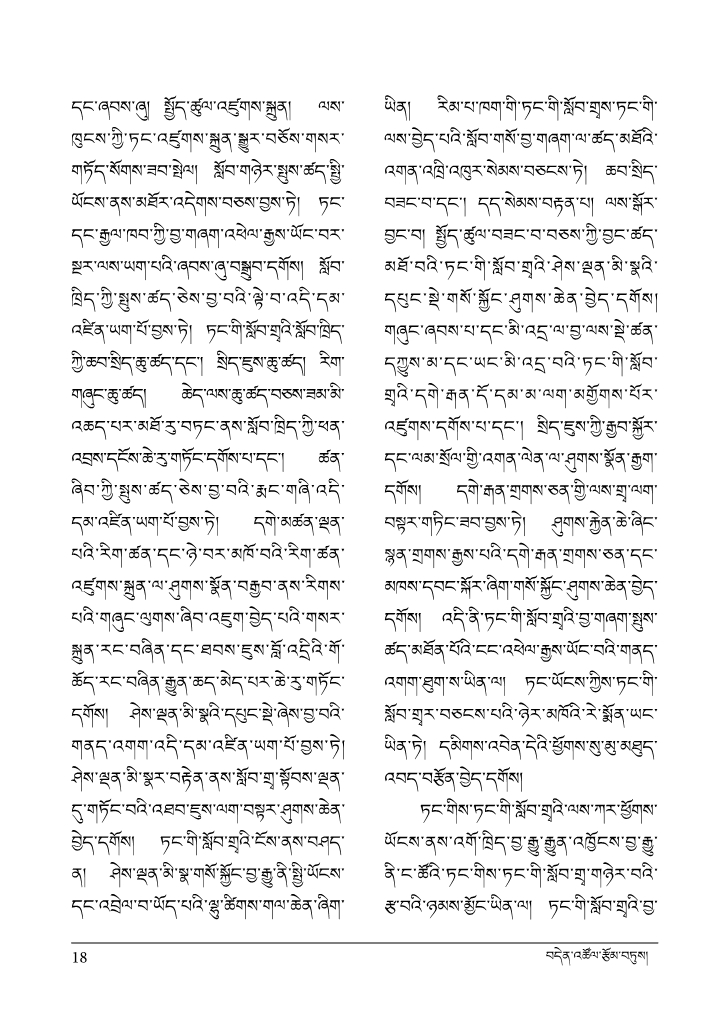 དང་ཞབས་ཞུ། སྤྱོད་ཚུལ་འཛུགས་སྐྲུན། ལས་
ཁུངས་ཀྱི་ཏང་འཛུགས་སྐྲུན་སྒྱུར་བཅོས་གསར་
གཏོད་སོགས་ཟབ་སྤེལ། སློབ་གཉེར་སྤུས་ཚད་སྤྱི་
ཡོངས་ནས་མཐོར་འདེགས་བཅས་བྱས་ཏེ། ཏང་
དང་རྒྱལ་ཁབ་ཀྱི་བྱ་གཞག་འཕེལ་རྒྱས་ཡོང་བར་
སྔར་ལས་ཡག་པའི་ཞབས་ཞུ་བསྒྲུབ་དགོས། སློབ་
ཁྲིད་ཀྱི་སྤུས་ཚད་ཅེས་བྱ་བའི་ལྟེ་བ་འདི་དམ་
འཛིན་ཡག་པོ་བྱས་ཏེ། ཏང་གི་སློབ་གྲྭའི་སློབ་ཁྲིད་
ཀྱི་ཆབ་སྲིད་ཆུ་ཚད་དང་། སྲིད་ཇུས་ཆུ་ཚད། རིག་
གཞུང་ཆུ་ཚད། ཆེད་ལས་ཆུ་ཚད་བཅས་ཟམ་མི་
འཆད་པར་མཐོ་རུ་བཏང་ནས་སློབ་ཁྲིད་ཀྱི་ཕན་
འབྲས་དངོས་ཆེ་རུ་གཏོང་དགོས་པ་དང་། ཚན་
ཞིབ་ཀྱི་སྤུས་ཚད་ཅེས་བྱ་བའི་རྨང་གཞི་འདི་
དམ་འཛིན་ཡག་པོ་བྱས་ཏེ། དགེ་མཚན་ལྡན་
པའི་རིག་ཚན་དང་ཉེ་བར་མཁོ་བའི་རིག་ཚན་
འཛུགས་སྐྲུན་ལ་ཤུགས་སྣོན་བརྒྱབ་ནས་རིགས་
པའི་གཞུང་ལུགས་ཞིབ་འཇུག་བྱེད་པའི་གསར་
སྐྲུན་རང་བཞིན་དང་ཐབས་ཇུས་བློ་འདྲིའི་གོ་
ཆོད་རང་བཞིན་རྒྱུན་ཆད་མེད་པར་ཆེ་རུ་གཏོང་
དགོས། ཤེས་ལྡན་མི་སྣའི་དཔུང་སྡེ་ཞེས་བྱ་བའི་
གནད་འགག་འདི་དམ་འཛིན་ཡག་པོ་བྱས་ཏེ།
ཤེས་ལྡན་མི་སྣར་བརྟེན་ནས་སློབ་གྲྭ་སྟོབས་ལྡན་
དུ་གཏོང་བའི་འཐབ་ཇུས་ལག་བསྟར་ཤུགས་ཆེན་
བྱེད་དགོས། ཏང་གི་སློབ་གྲྭའི་ངོས་ནས་བཤད་
ན། ཤེས་ལྡན་མི་སྣ་གསོ་སྐྱོང་བྱ་རྒྱུ་ནི་སྤྱི་ཡོངས་
དང་འབྲེལ་བ་ཡོད་པའི་ལྷུ་ཚིགས་གལ་ཆེན་ཞིག་
ཡིན། རིམ་པ་ཁག་གི་ཏང་གི་སློབ་གྲྭས་ཏང་གི་
ལས་བྱེད་པའི་སློབ་གསོ་བྱ་གཞག་ལ་ཚད་མཐོའི་
འགན་འཁྲི་འཁུར་སེམས་བཅངས་ཏེ། ཆབ་སྲིད་
བཟང་བ་དང་། དད་སེམས་བརྟན་པ། ལས་སྒོར་
བྱང་བ། སྤྱོད་ཚུལ་བཟང་བ་བཅས་ཀྱི་བྱང་ཚད་
མཐོ་བའི་ཏང་གི་སློབ་གྲྭའི་ཤེས་ལྡན་མི་སྣའི་
དཔུང་སྡེ་གསོ་སྐྱོང་ཤུགས་ཆེན་བྱེད་དགོས།
གཞུང་ཞབས་པ་དང་མི་འདྲ་ལ་བྱ་ལས་སྡེ་ཚན་
དཀྱུས་མ་དང་ཡང་མི་འདྲ་བའི་ཏང་གི་སློབ་
གྲྭའི་དགེ་རྒན་དོ་དམ་མ་ལག་མགྱོགས་པོར་
འཛུགས་དགོས་པ་དང་། སྲིད་ཇུས་ཀྱི་རྒྱབ་སྐྱོར་
དང་ལམ་སྲོལ་གྱི་འགན་ལེན་ལ་ཤུགས་སྣོན་རྒྱག་
དགོས། དགེ་རྒན་གྲགས་ཅན་གྱི་ལས་གྲྭ་ལག་
བསྟར་གཏིང་ཟབ་བྱས་ཏེ། ཤུགས་རྐྱེན་ཆེ་ཞིང་
སྙན་གྲགས་རྒྱས་པའི་དགེ་རྒན་གྲགས་ཅན་དང་
མཁས་དབང་སྐོར་ཞིག་གསོ་སྐྱོང་ཤུགས་ཆེན་བྱེད་
དགོས། འདི་ནི་ཏང་གི་སློབ་གྲྭའི་བྱ་གཞག་སྤུས་
ཚད་མཐོན་པོའི་ངང་འཕེལ་རྒྱས་ཡོང་བའི་གནད་
འགག་ཐུག་ས་ཡིན་ལ། ཏང་ཡོངས་ཀྱིས་ཏང་གི་
སློབ་གྲྭར་བཅངས་པའི་ཉེར་མཁོའི་རེ་སྨོན་ཡང་
ཡིན་ཏེ། དམིགས་འབེན་དེའི་ཕྱོགས་སུ་མུ་མཐུད་
འབད་བརྩོན་བྱེད་དགོས།
ཏང་གིས་ཏང་གི་སློབ་གྲྭའི་ལས་ཀར་ཕྱོགས་
ཡོངས་ནས་འགོ་ཁྲིད་བྱ་རྒྱུ་རྒྱུན་འཁྱོངས་བྱ་རྒྱུ་
ནི་ང་ཚོའི་ཏང་གིས་ཏང་གི་སློབ་གྲྭ་གཉེར་བའི་
རྩ་བའི་ཉམས་མྱོང་ཡིན་ལ། ཏང་གི་སློབ་གྲྭའི་བྱ་
18 བདེན་འཚོལ་རྩོམ་བཏུས།